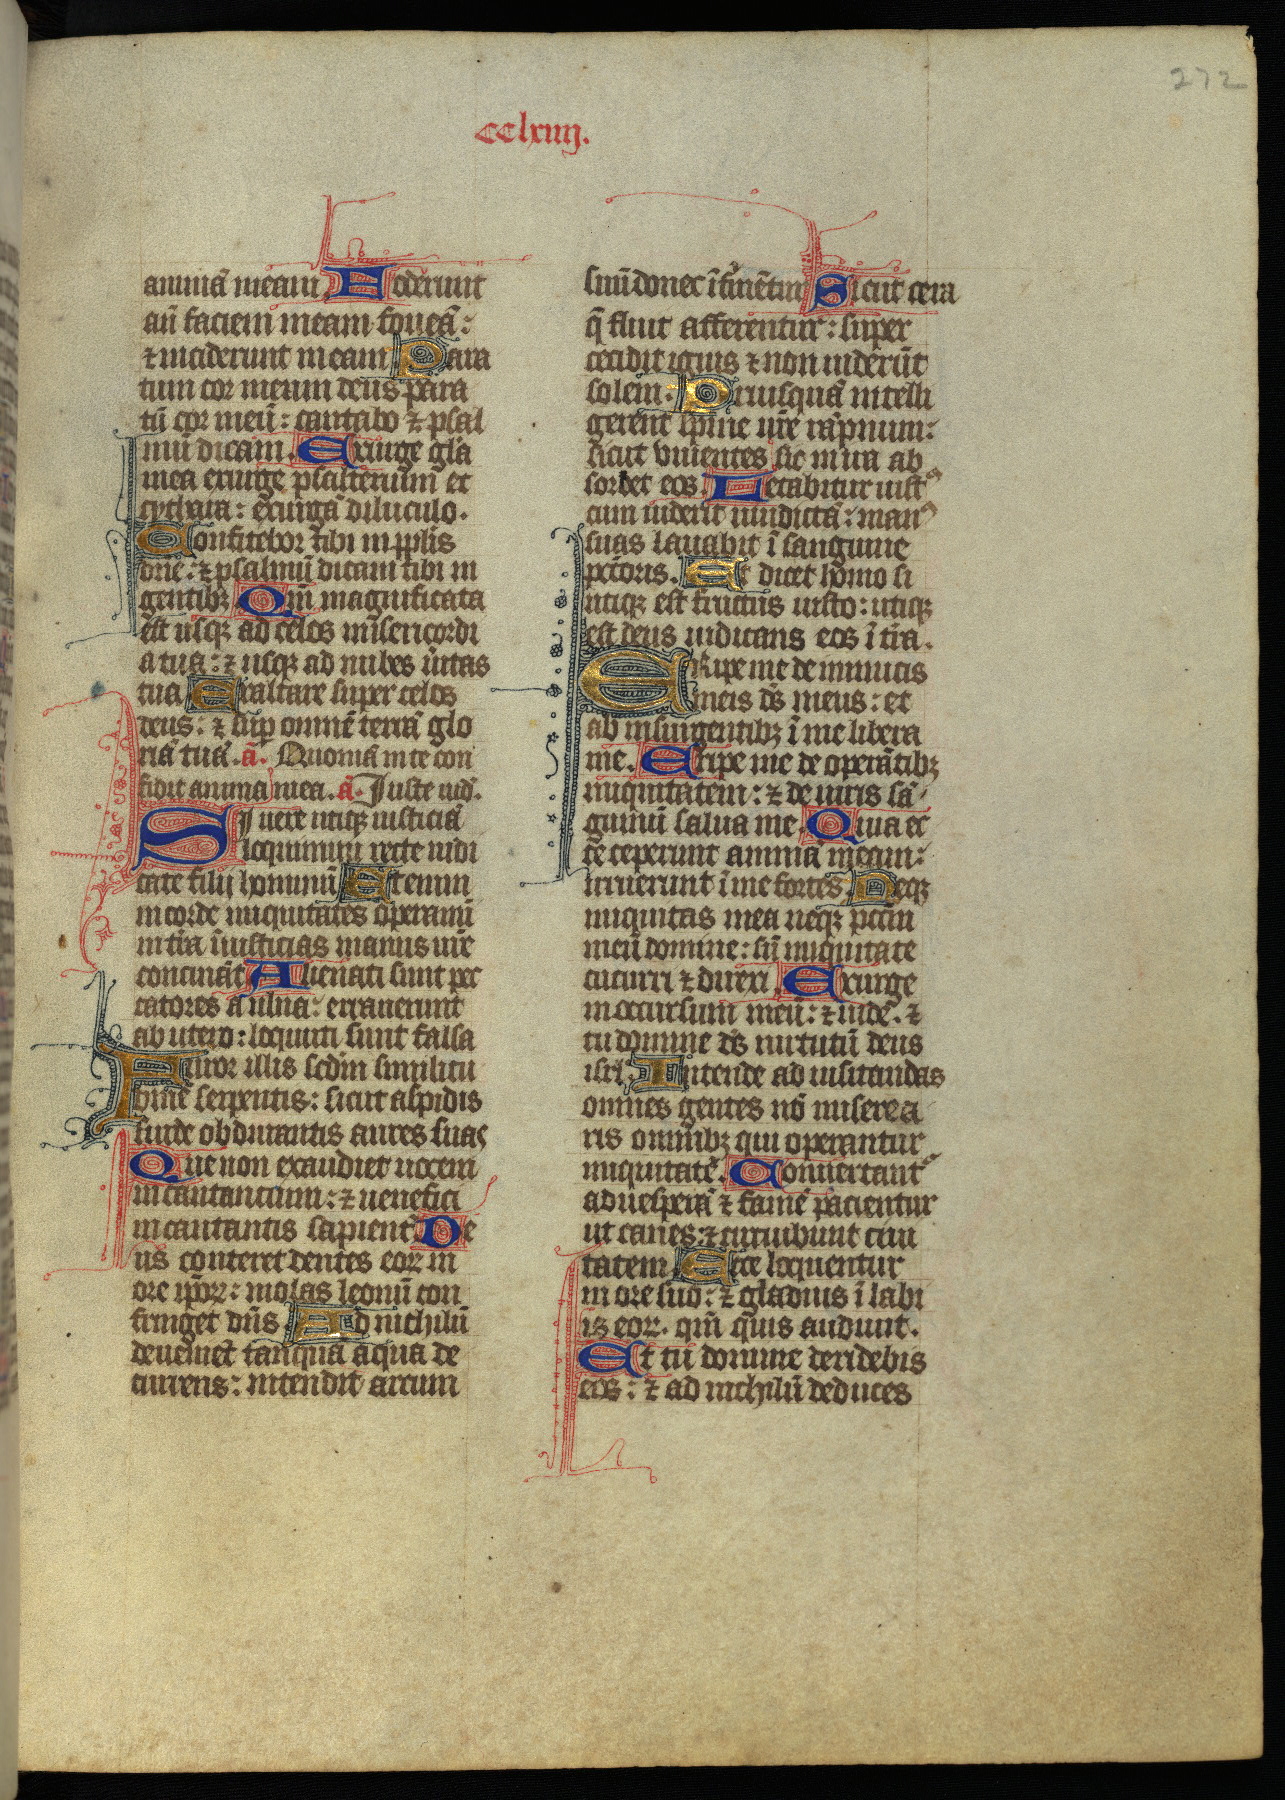 272
CClxiiij.
animā meam. Foderunt
an̄ faciem meam foueā:
⁊ inciderunt in eam Para
tum cor meum deus para
tū cor meū: cantabo ⁊ psal
mū dicam. Exurge gla
mea exurge psalterium et
cythara: exurgā diluculo.
Confitebor tibi in pplīs
dn̄e: ⁊ psalmū dicam tibi in
gentibꝫ Qm̄ magnificata
est usqꝫ ad celos misericordi
a tua: ⁊ usqꝫ ad nubes ūitas
tua Exaltare super celos
deus: ⁊ sup̄ omnē terrā glo
riā tuā. a͞. Quoniā in te con
fidit anima mea. a͞. Iuste iud̄.
Si uere utiqꝫ iusticiā
loquimini recte iudi
cate filij hominū Etenim
in corde iniquitates operamī
in tr̄a iniusticias manus ur̄e
concināt Alienati sunt pec
catores a uulua: errauerunt
ab utero: loquuti sunt falsa
Furor illis scdm̄ similitu
dinē serpentis: sicut aspidis
surde obdurantis aures suas
Que non exaudiet uocem
incantancium: ⁊ uenefici
incantantis sapient̄ De
us conteret dentes eoꝝ in
ore ip̄oꝝ: molas leonū con
fringet dn̄s Ad nichilū
deuenient tanquā aqua de
currens: intendit arcum
suū donec īfirmētur Sicut cera
q̄ fluit afferentur: super
cecidit ignis ⁊ non uiderūt
solem. Priusquā intelli
gerent spine ur̄e rāpnum:
sicut viuentes sic in ira ab
sorbet eos. Letabitur iust᷒
cum uiderit uindictā: man᷒
suas lauabit ī sanguine
pctōris. Et dicet homo si
utiqꝫ est fructus iusto: utiqꝫ
est deus iudicans eos ī tr̄a.
Eripe me de inimicis
meis ds̄ meus: et
ab insurgentibꝫ ī me libera
me. Eripe me de operātibꝫ
iniquitatem: ⁊ de uiris sā
guinū salua me. Quia ec
ce ceperunt animā meam:
irruerunt ī me fortes. Neqꝫ
iniquitas mea neqꝫ pctm̄
meū domine: sn̄ iniquitate
cucurri ⁊ direxi. Exurge
in occursum meū: ⁊ uidē. ⁊
tu domine ds̄ uirtutū deus
isrl̄. Intende ad uisitandas
omnes gentes nō miserea
ris omnibꝫ qui operantur
iniquitatē. Conuertant᷒
ad uesperā ⁊ famē pacientur
ut canes: ⁊ circuibunt ciui
tatem Ecce loquentur
in ore suo: ⁊ gladius ī labi
is eoꝝ. qm̄ quis audiuit.
Et tu domine deridebis
eos: ⁊ ad nichilū deduces